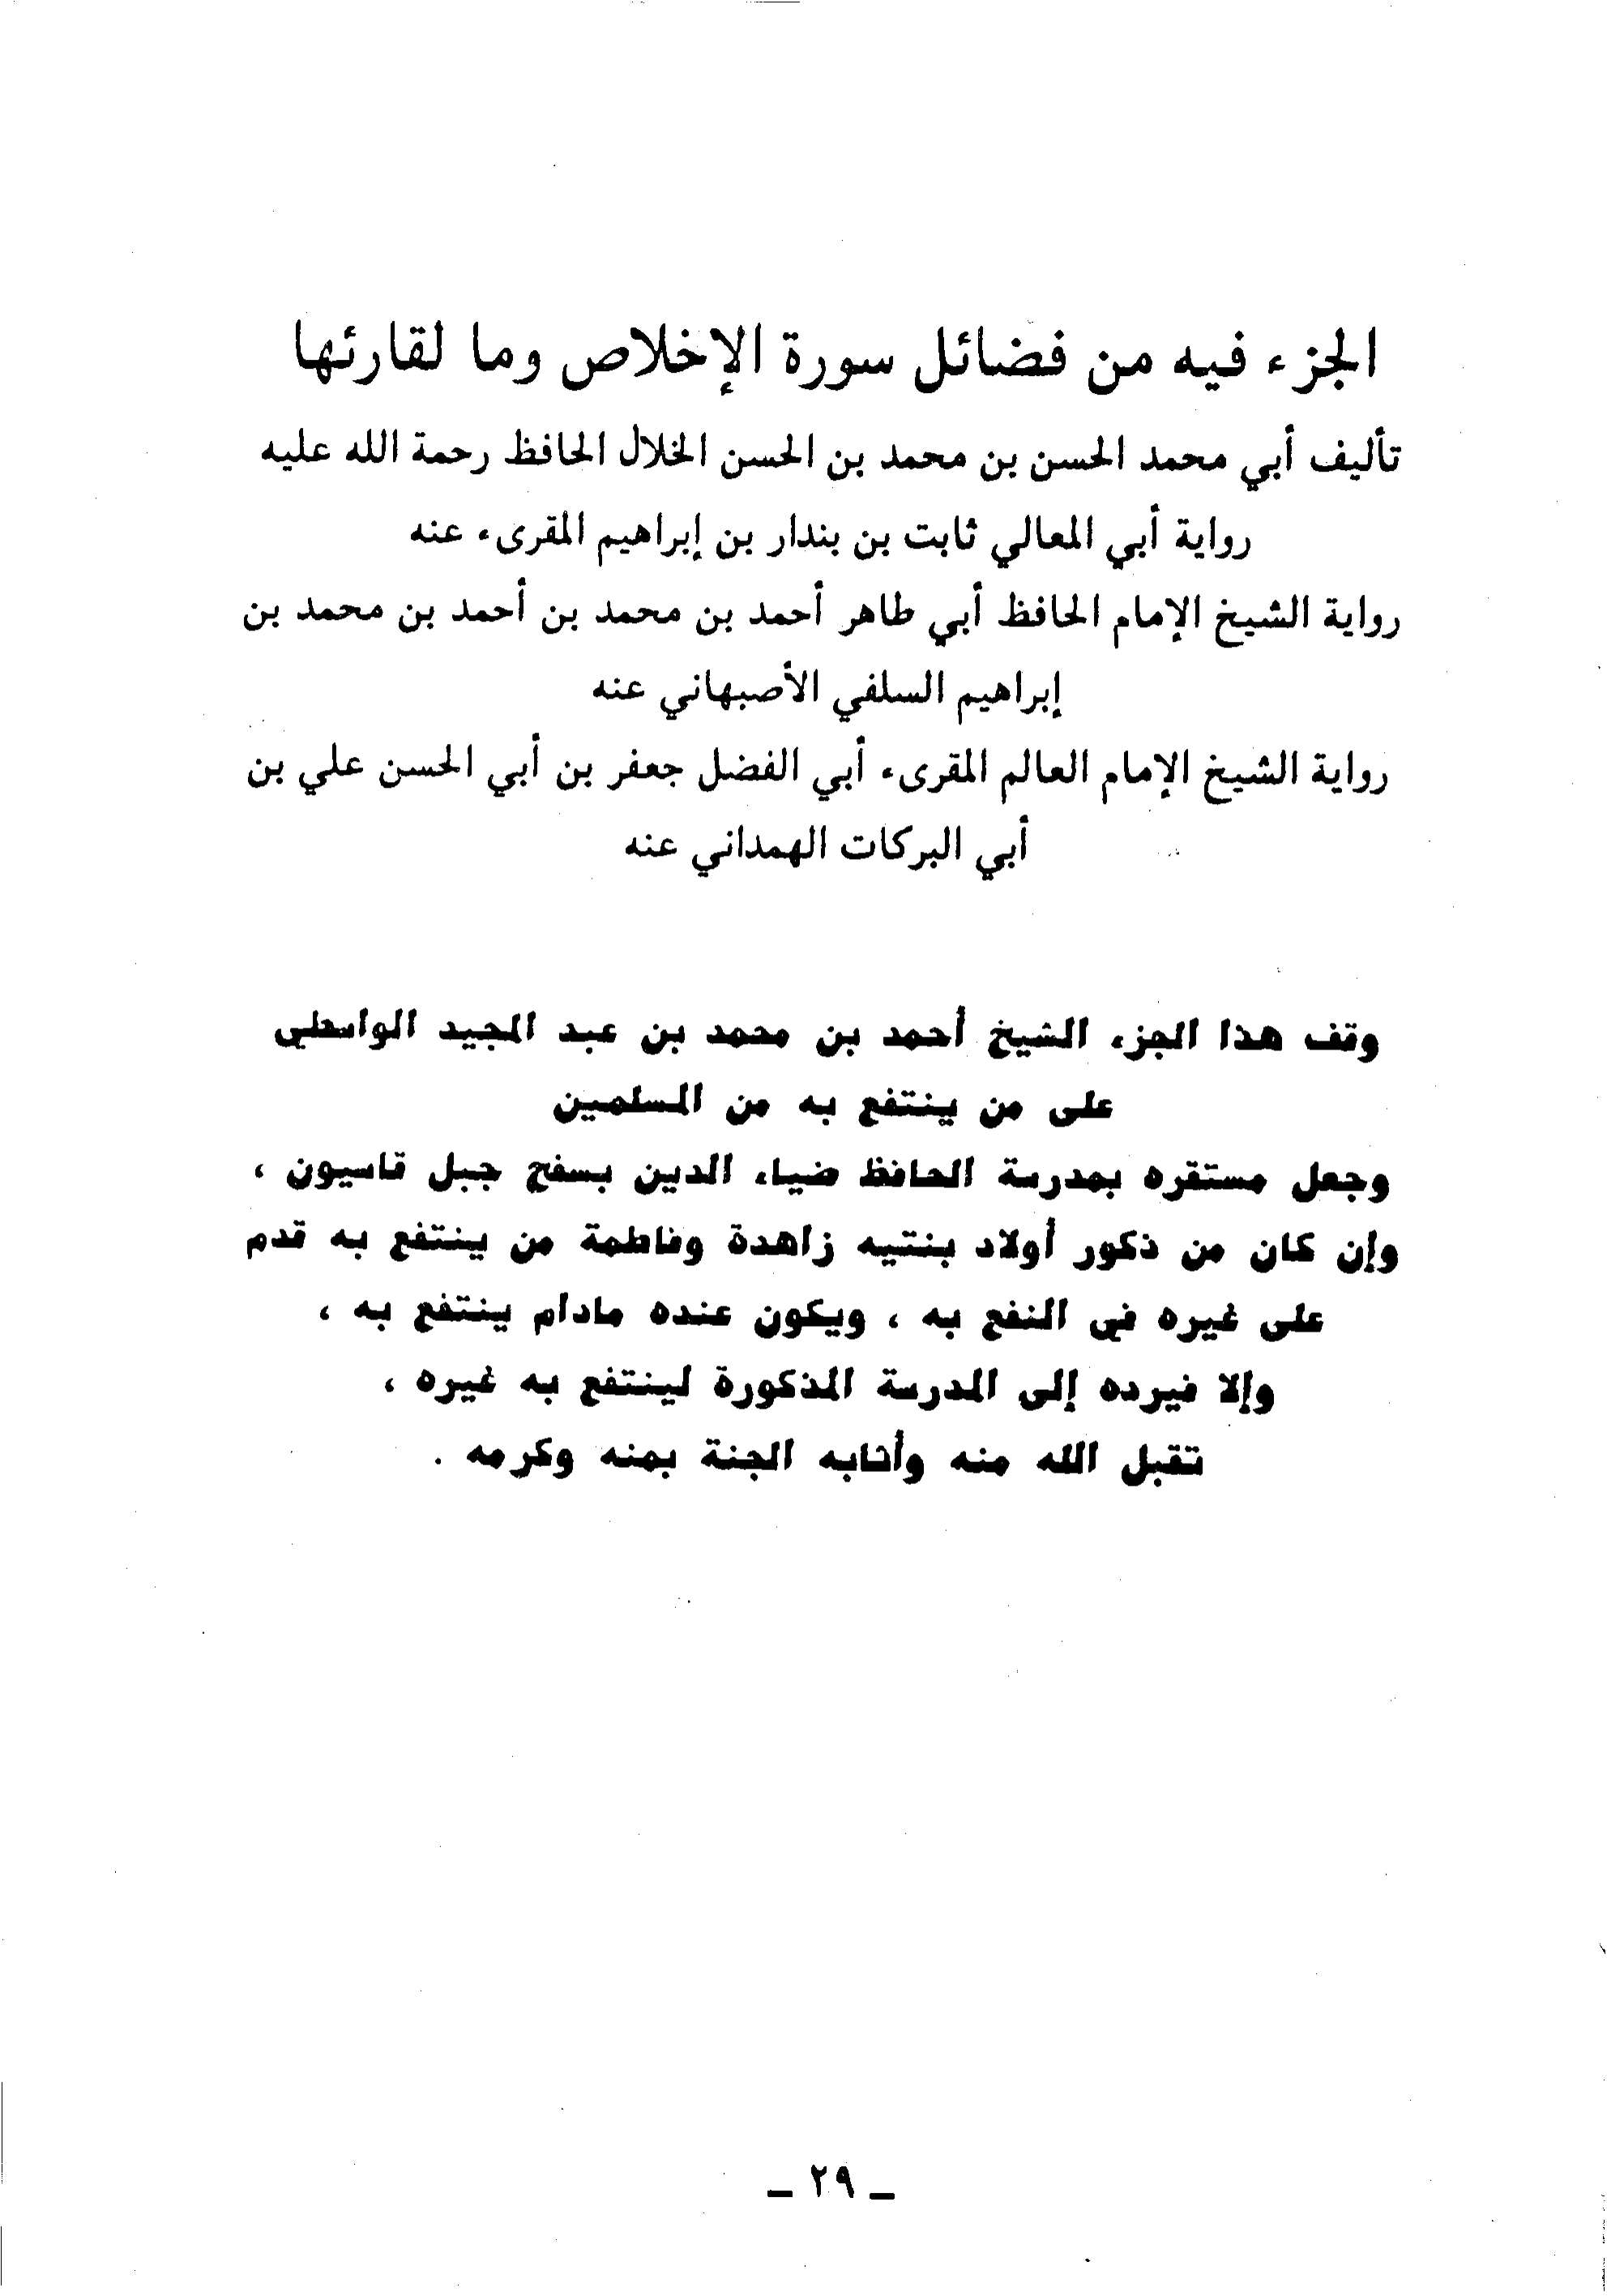 الجزء فيه من فضائل سورة الإخلاص وما لقارئها
تأليف أبي محمد الحسن بن محمد بن الحسن الخلال الحافظ رحمة الله عليه
رواية أبي المعالي ثابت بن بندار بن إبراهيم المقرىء عنه
رواية الشيخ الإمام الحافظ أبي طاهر أحمد بن محمد بن أحمد بن محمد بن
إبراهيم السلفي الأصبهاني عنه
رواية الشيخ الإمام العالم المقرىء أبي الفضل جعفر بن أبي الحسن علي بن
أبي البركات الهمداني عنه
وقف هذا الجزء الشيخ أحمد بن محمد بن عبد المجيد الواسطي
على من ينتفع به من المسلمين
وجعل مستقره بمدرسة الحافظ ضياء الدين بسفح جبل قاسيون ،
وإن كان من ذكور أولاد بنتيه زاهدة وفاطمة من ينتفع به قدم
على غيره في النفع به ، ويكون عنده مادام ينتفع به ،
وإلا فيرده إلى المدرسة المذكورة لينتفع به غيره ،
تقبل الله منه وأثابه الجنة بمنه وكرمه .
ـ ٢٩ ـ